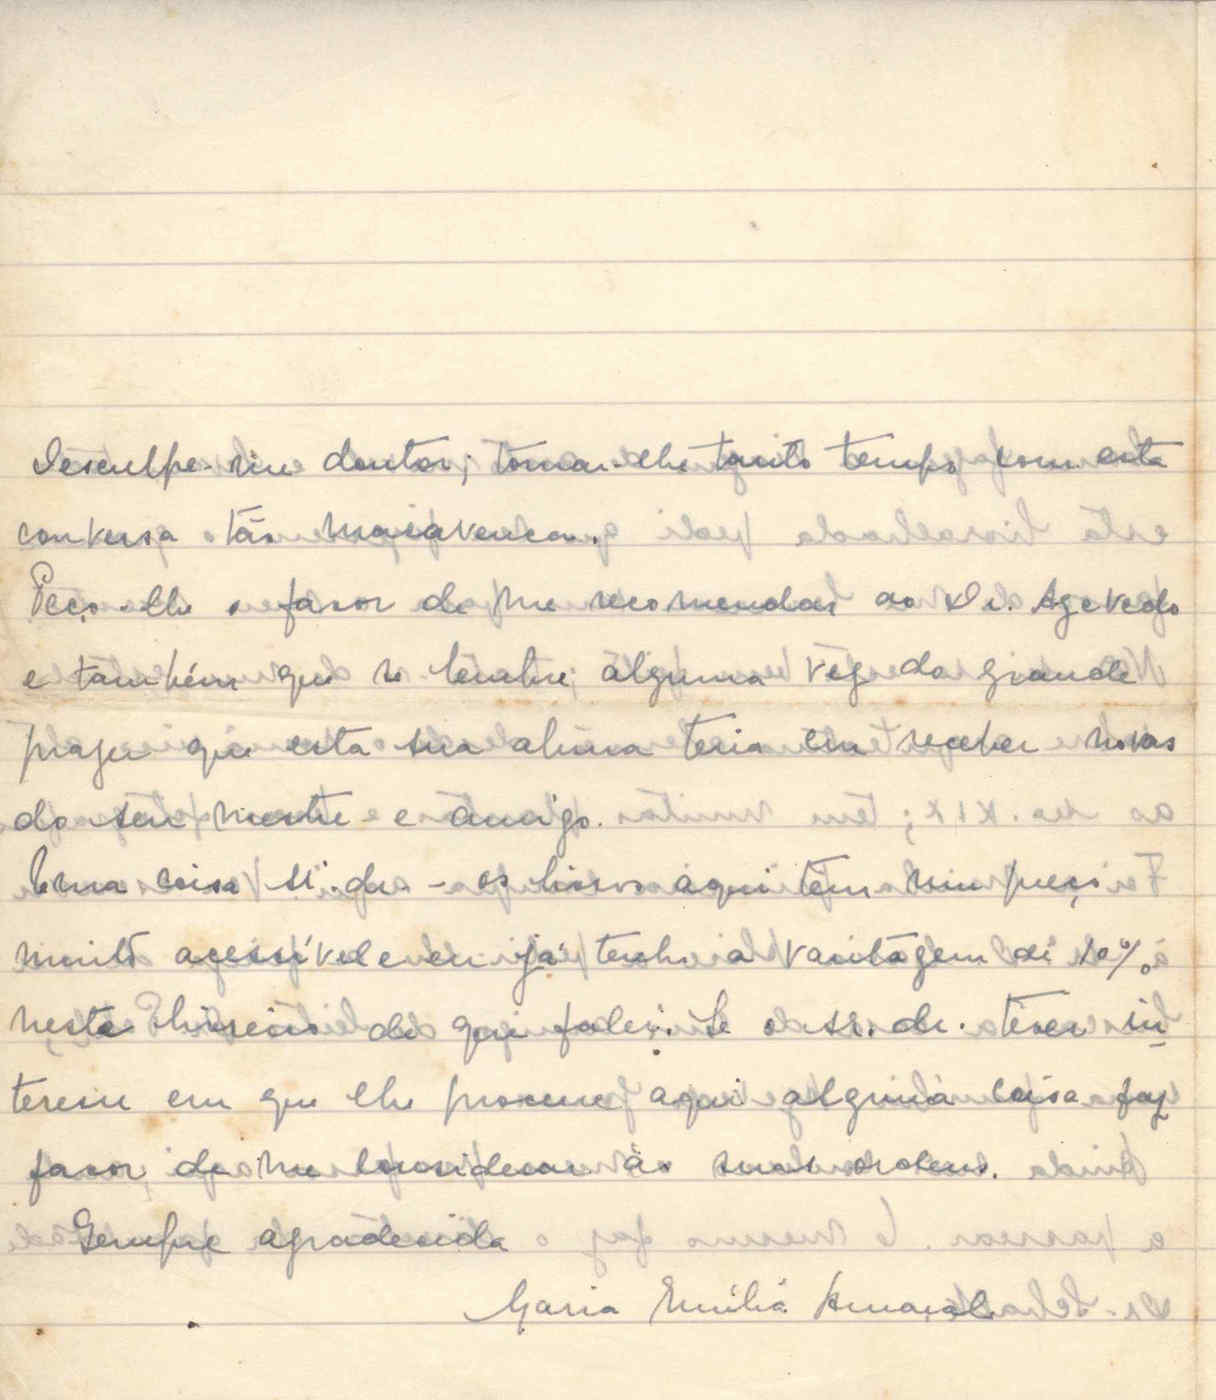 Desculpe-me doutor; tomar-lhe tanto tempo com esta
conversa tão
Peço-lhe o favor de me recomendar ao Dr. Azevedo
e também que se lembre; alguma vez do grande
prazer que esta sua aluna teria em receber novas
do seu mestre e amigo.
Uma coisa Sr. dr. - os livros aqui tem um preço
muito acessível e eu já tenho a vantagem de 10%
nesta livraria de que falei. Se o sr. dr. tiver in
teresse em que lhe procure aqui alguma coisa faz
favor, de me considerar às suas ordens.
Sempre agradecida
Maria Emília Amaral